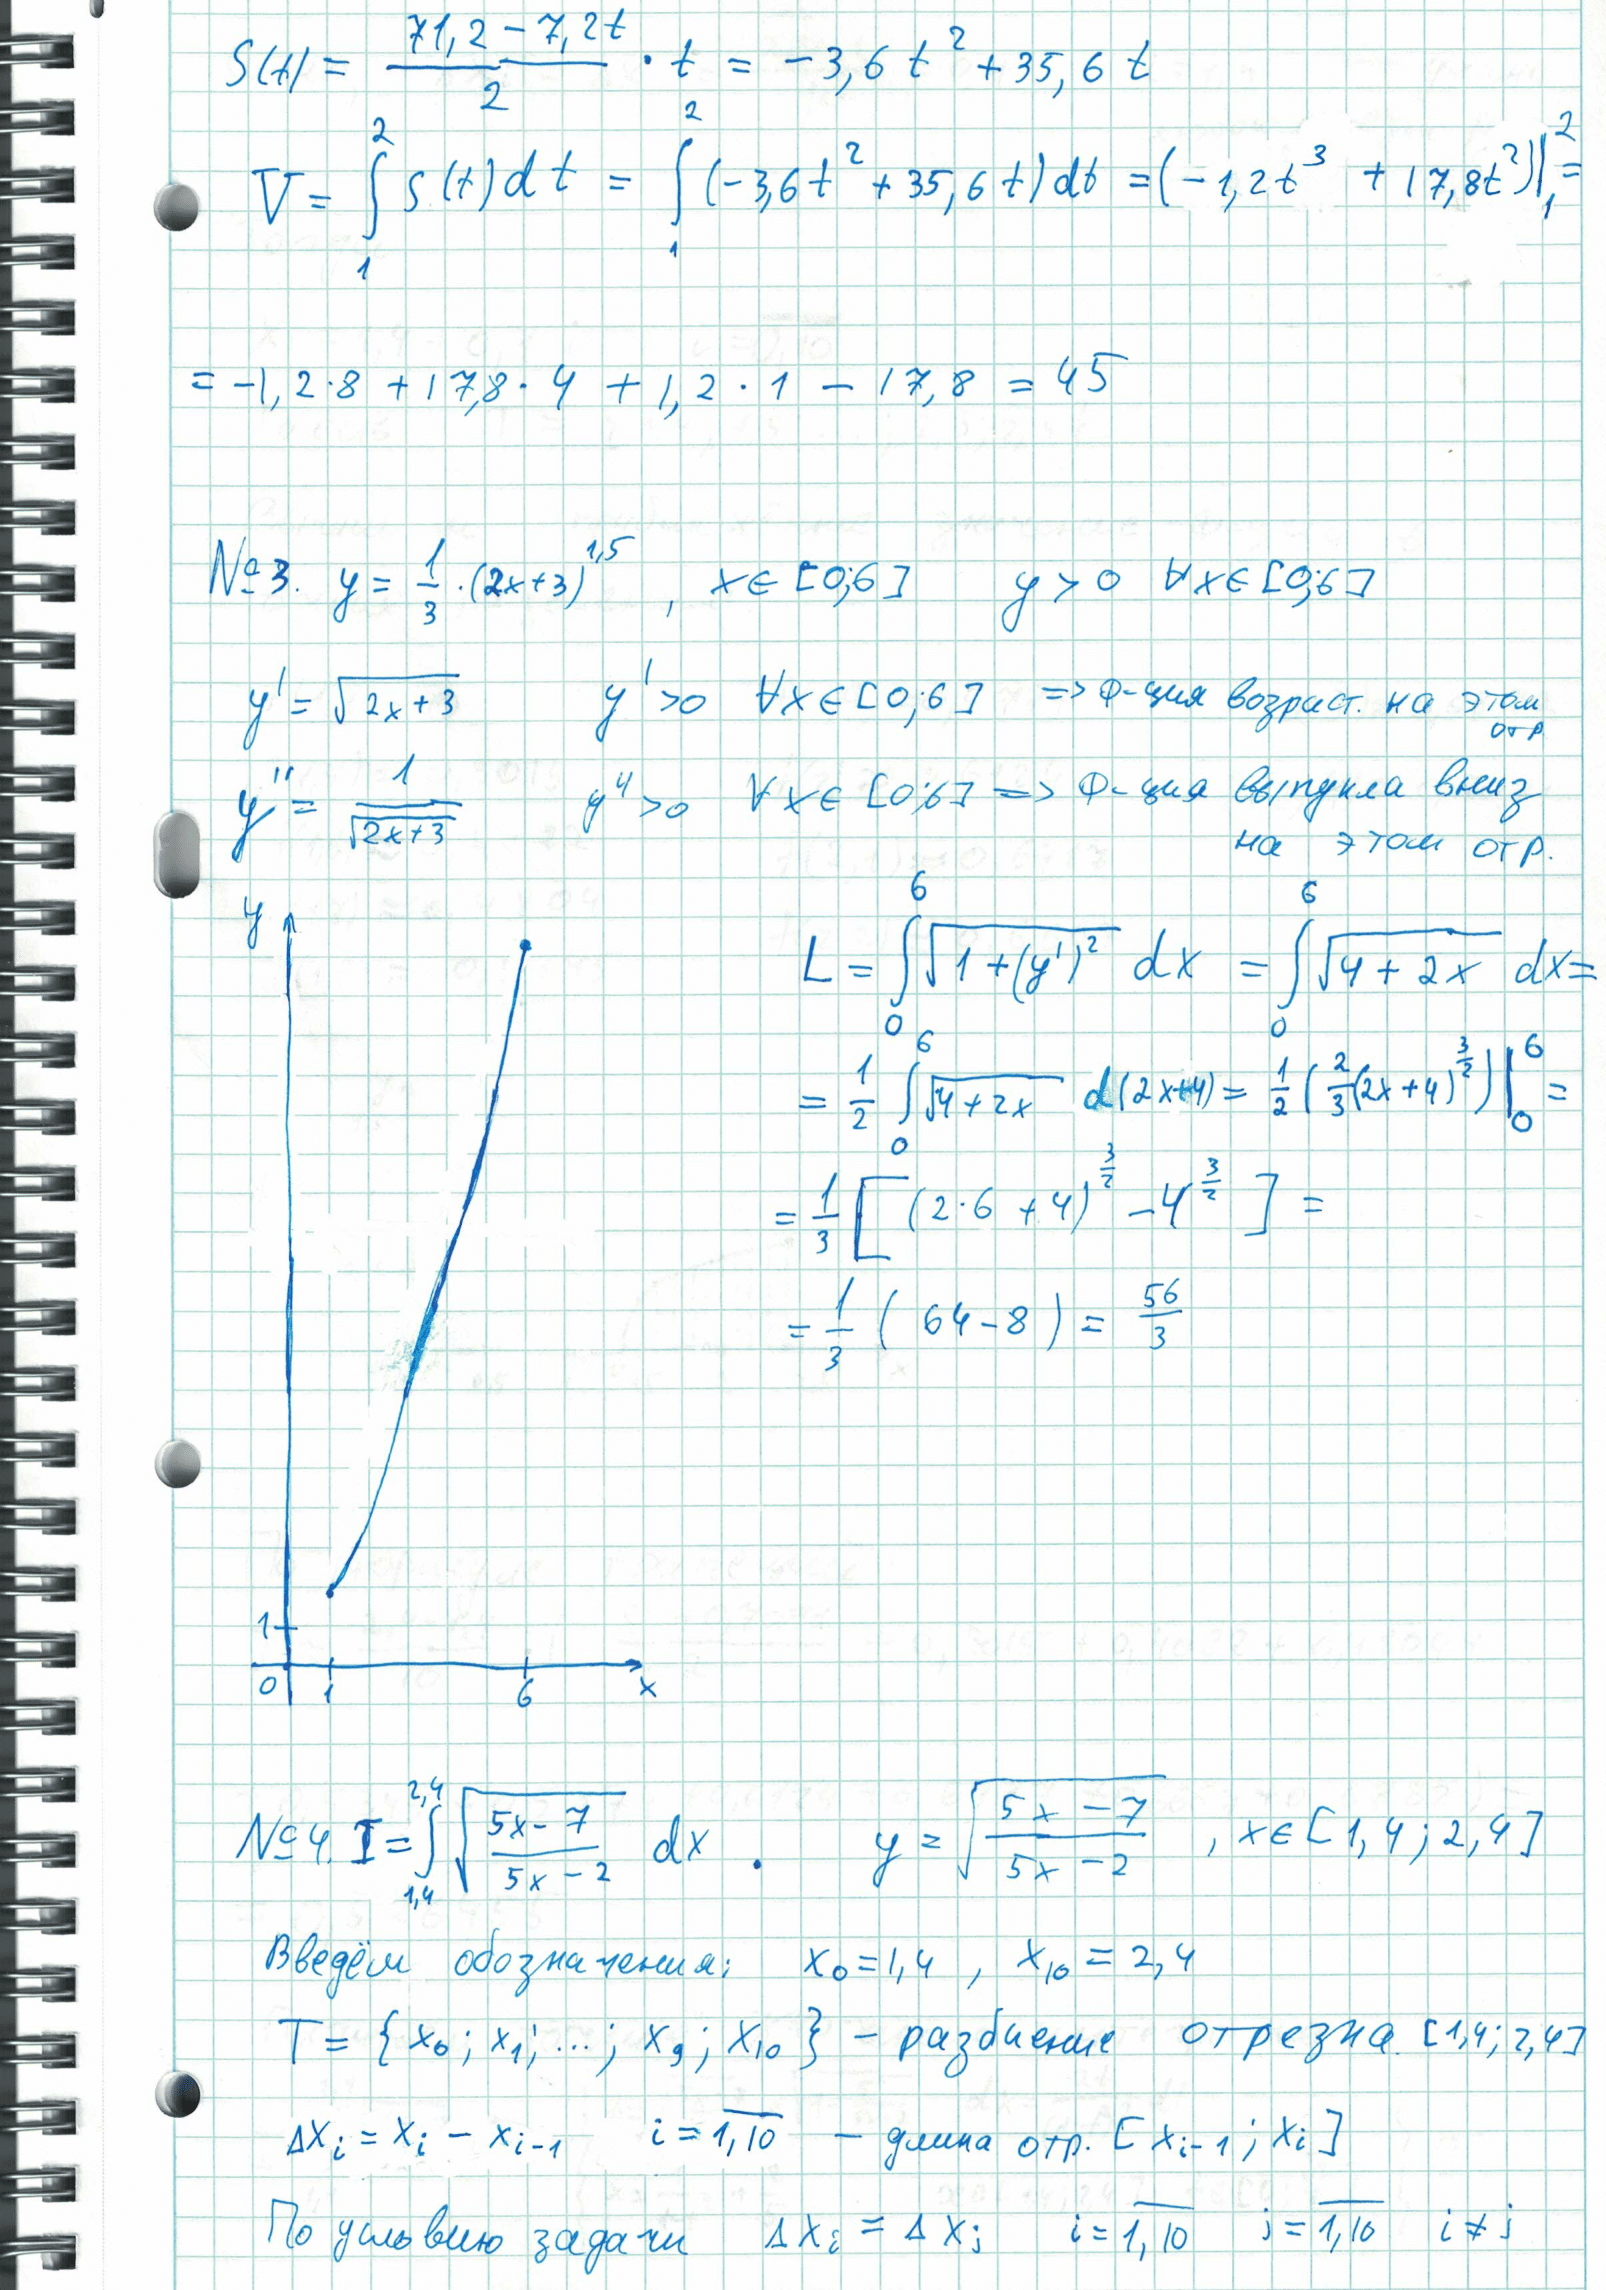 S(t) = (71,2 - 7,2t)/2 · t = -3,6t² + 35,6t
V = ∫₁² S(t)dt = ∫₁² (-3,6t² + 35,6t)dt = (-1,2t³ + 17,8t²)|₁² =
= -1,2·8 + 17,8·4 + 1,2·1 - 17,8 = 45
№3. y = 1/3·(2x+3)^1,5 , x∈[0;6] y>0 ∀x∈[0;6]
y' = √(2x+3) y'>0 ∀x∈[0;6] => Ф-ция возраст. на этом отр
y'' = 1/√(2x+3) y''>0 ∀x∈[0;6] => Ф-ция выпукла вниз
на этом отр.
y
L = ∫₀⁶ √(1+(y')²) dx = ∫₀⁶ √(4+2x) dx =
= 1/2 ∫₀⁶ √(4+2x) d(2x+4) = 1/2 (2/3(2x+4)^(3/2))|₀⁶ =
= 1/3 [(2·6+4)^(3/2) - 4^(3/2)] =
= 1/3 (64-8) = 56/3
1
0 1 6 x
№4. I = ∫_{1,4}^{2,4} √((5x-7)/(5x-2)) dx . y = √((5x-7)/(5x-2)) , x∈[1,4; 2,4]
Введём обозначения: x₀=1,4 , x₁₀=2,4
T = {x₀; x₁; ...; x₉; x₁₀} - разбиение отрезка [1,4; 2,4]
Δxᵢ = xᵢ - xᵢ₋₁ i = 1,10 - длина отр. [xᵢ₋₁; xᵢ]
По условию задачи Δxᵢ = Δxⱼ i = 1,10 j = 1,10 i≠j